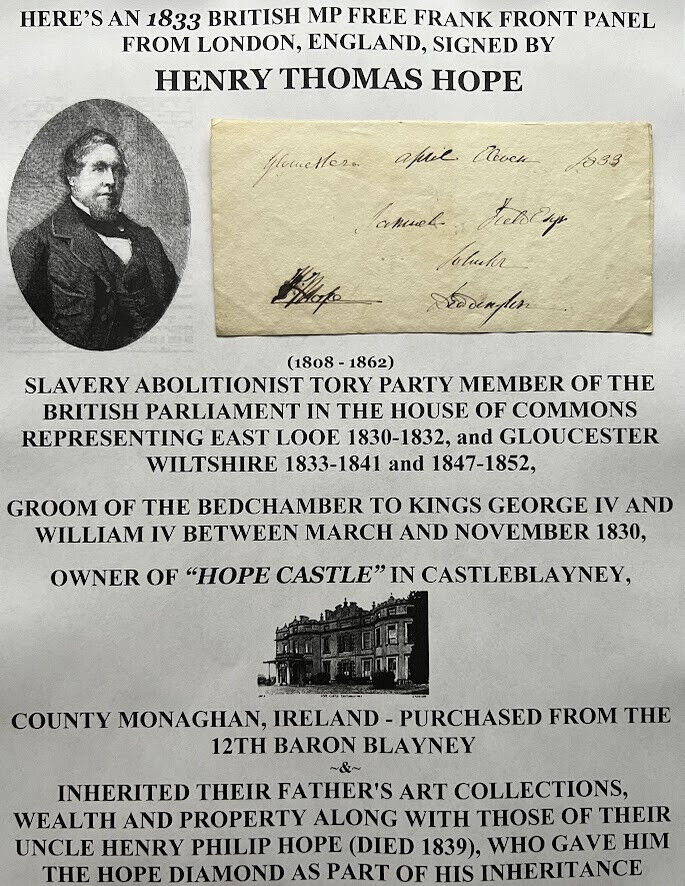 HERE'S AN 1833 BRITISH MP FREE FRANK FRONT PANEL
FROM LONDON, ENGLAND, SIGNED BY
HENRY THOMAS HOPE
Gloucester April Eleven 1833
Samuel Field Esqr
Solicitor
Deddington
HTHope
(1808 - 1862)
SLAVERY ABOLITIONIST TORY PARTY MEMBER OF THE
BRITISH PARLIAMENT IN THE HOUSE OF COMMONS
REPRESENTING EAST LOOE 1830-1832, and GLOUCESTER
WILTSHIRE 1833-1841 and 1847-1852,
GROOM OF THE BEDCHAMBER TO KINGS GEORGE IV AND
WILLIAM IV BETWEEN MARCH AND NOVEMBER 1830,
OWNER OF "HOPE CASTLE" IN CASTLEBLAYNEY,
COUNTY MONAGHAN, IRELAND - PURCHASED FROM THE
12TH BARON BLAYNEY
~&~
INHERITED THEIR FATHER'S ART COLLECTIONS,
WEALTH AND PROPERTY ALONG WITH THOSE OF THEIR
UNCLE HENRY PHILIP HOPE (DIED 1839), WHO GAVE HIM
THE HOPE DIAMOND AS PART OF HIS INHERITANCE